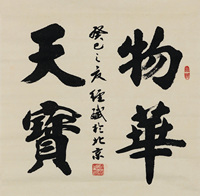 物華
天寶
癸巳之夏經斌於北京